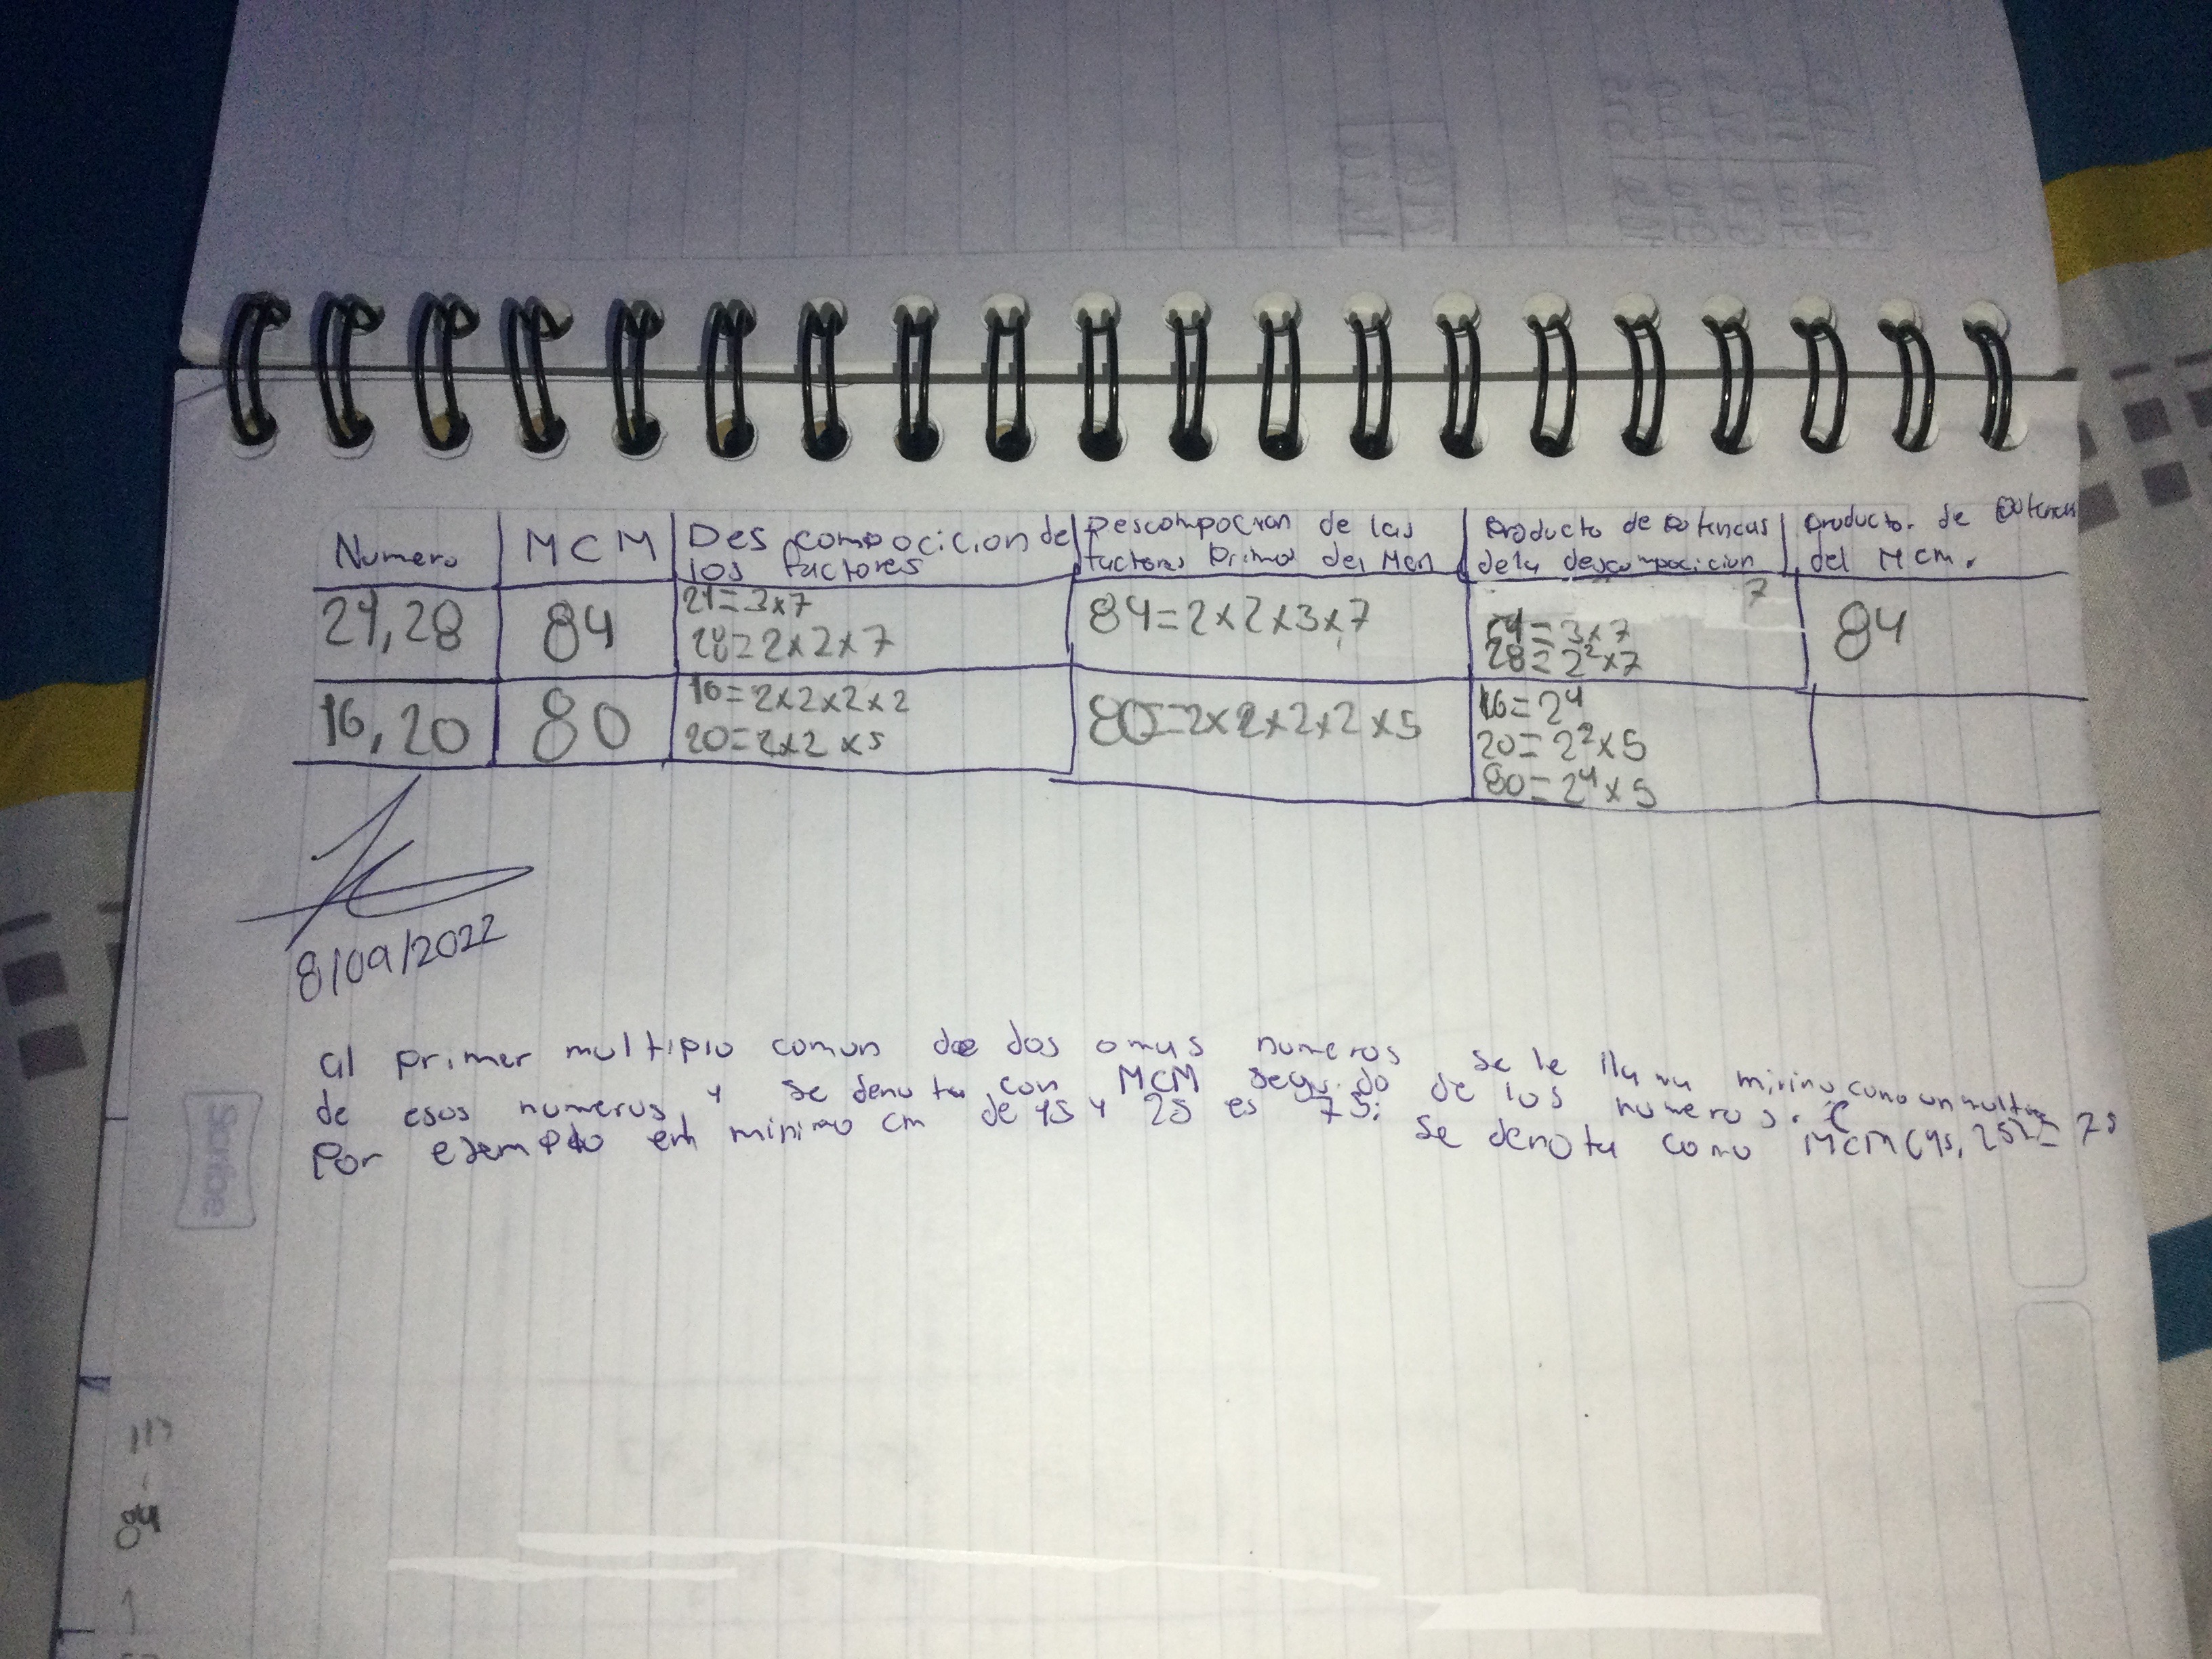 Numero MCM Descompocicion de los factores Descompocion de las factores primos del Mcm Producto de potencias de la descompocicion producto. de potencias del Mcm.
21,28 84 21=3x7 28=2x2x7 84=2x2x3x7 7 21=3x7 28=2²x7 84
16,20 80 16=2x2x2x2 20=2x2x5 80=2x2x2x2x5 16=2⁴ 20=2²x5 80=2⁴x5
8/09/2022
al primer multiplo comun de dos o mas numeros se le llama minimo comun multiplo
de esos numeros y se denota con MCM seguido de los numeros.
Por ejemplo el minimo cm de 15 y 25 es 75: se denota como MCM(15,25)=75
Scribe
84